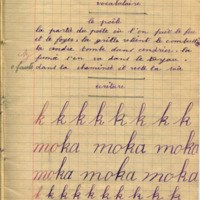 vocabulaire
le poêle
la partie du poêle où l'on fait le feu
et le foyer. la grille retient le combustible
la cendre tombe dans cendrier. la
fumé s'en va dans le tuyau,
dans la cheminée et reste la suie
écriture
k k k k k k k k
moka moka moka
moka moka moka
k k k k k k k k k